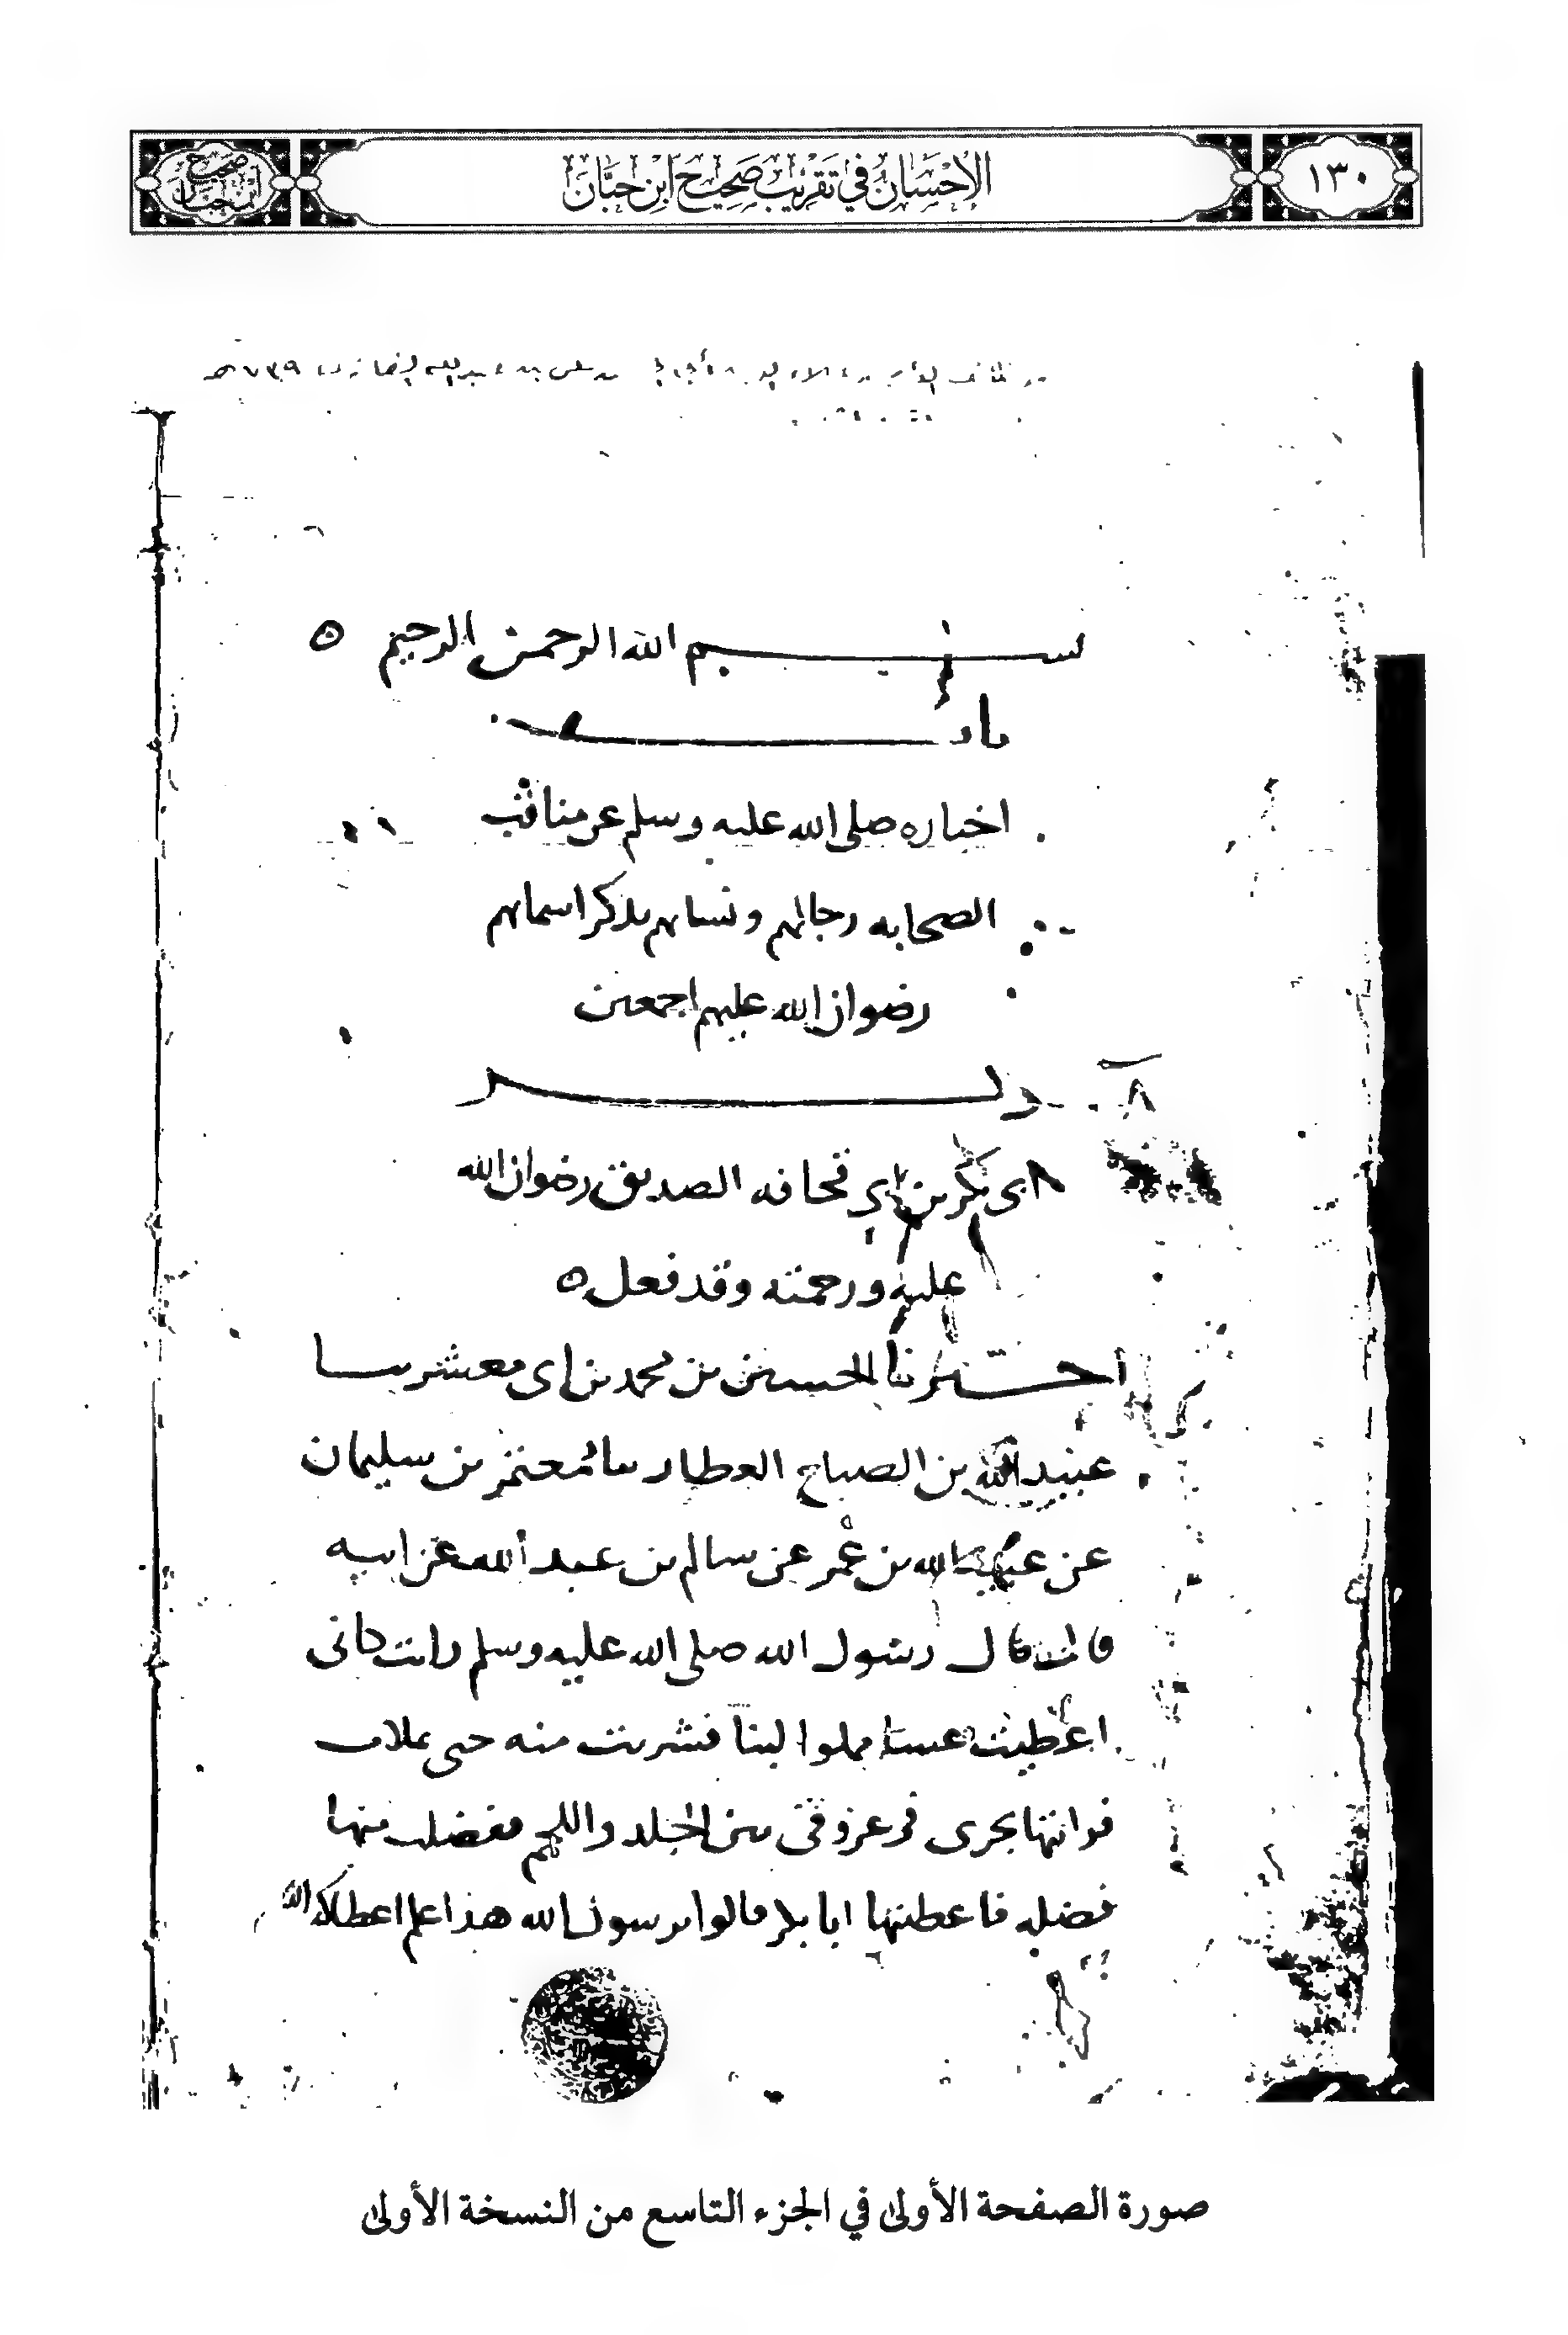 ١٣٠
الإحْسَانُ فِي تَقْرِيْبِ صَحِيْحِ ابْنِ حِبَّانَ
صحيح ابن حبان
علي بن عبد الله ٧٣٩ هـ
بسم الله الرحمن الرحيم ه
باب
اخباره صلى الله عليه وسلم عن مناقب
الصحابه رجالهم ونسابهم بذكر اسمايهم
رضوان الله عليهم اجمعين
ذكر
ابى بكر بن ابي قحافه الصديق رضوان الله
عليه ورحمته وقد فعل ه
اخبرنا الحسين بن محمد بن ابى معشر ثنا
عبيد الله بن الصباح العطار ثنا معتمر بن سليمان
عن عبيد الله بن عمر عن سالم بن عبد الله عن ابيه
قال قال رسول الله صلى الله عليه وسلم رايت كانى
اعطيت عسا مملوا لبنا فشربت منه حتى تملات
فرايتها تجرى فى عروقى بين الجلد واللحم ففضلت منها
فضله فاعطيتها ابا بكر قالوا يرسول الله هذا علم اعطاكه الله
صورة الصفحة الأولى في الجزء التاسع من النسخة الأولى